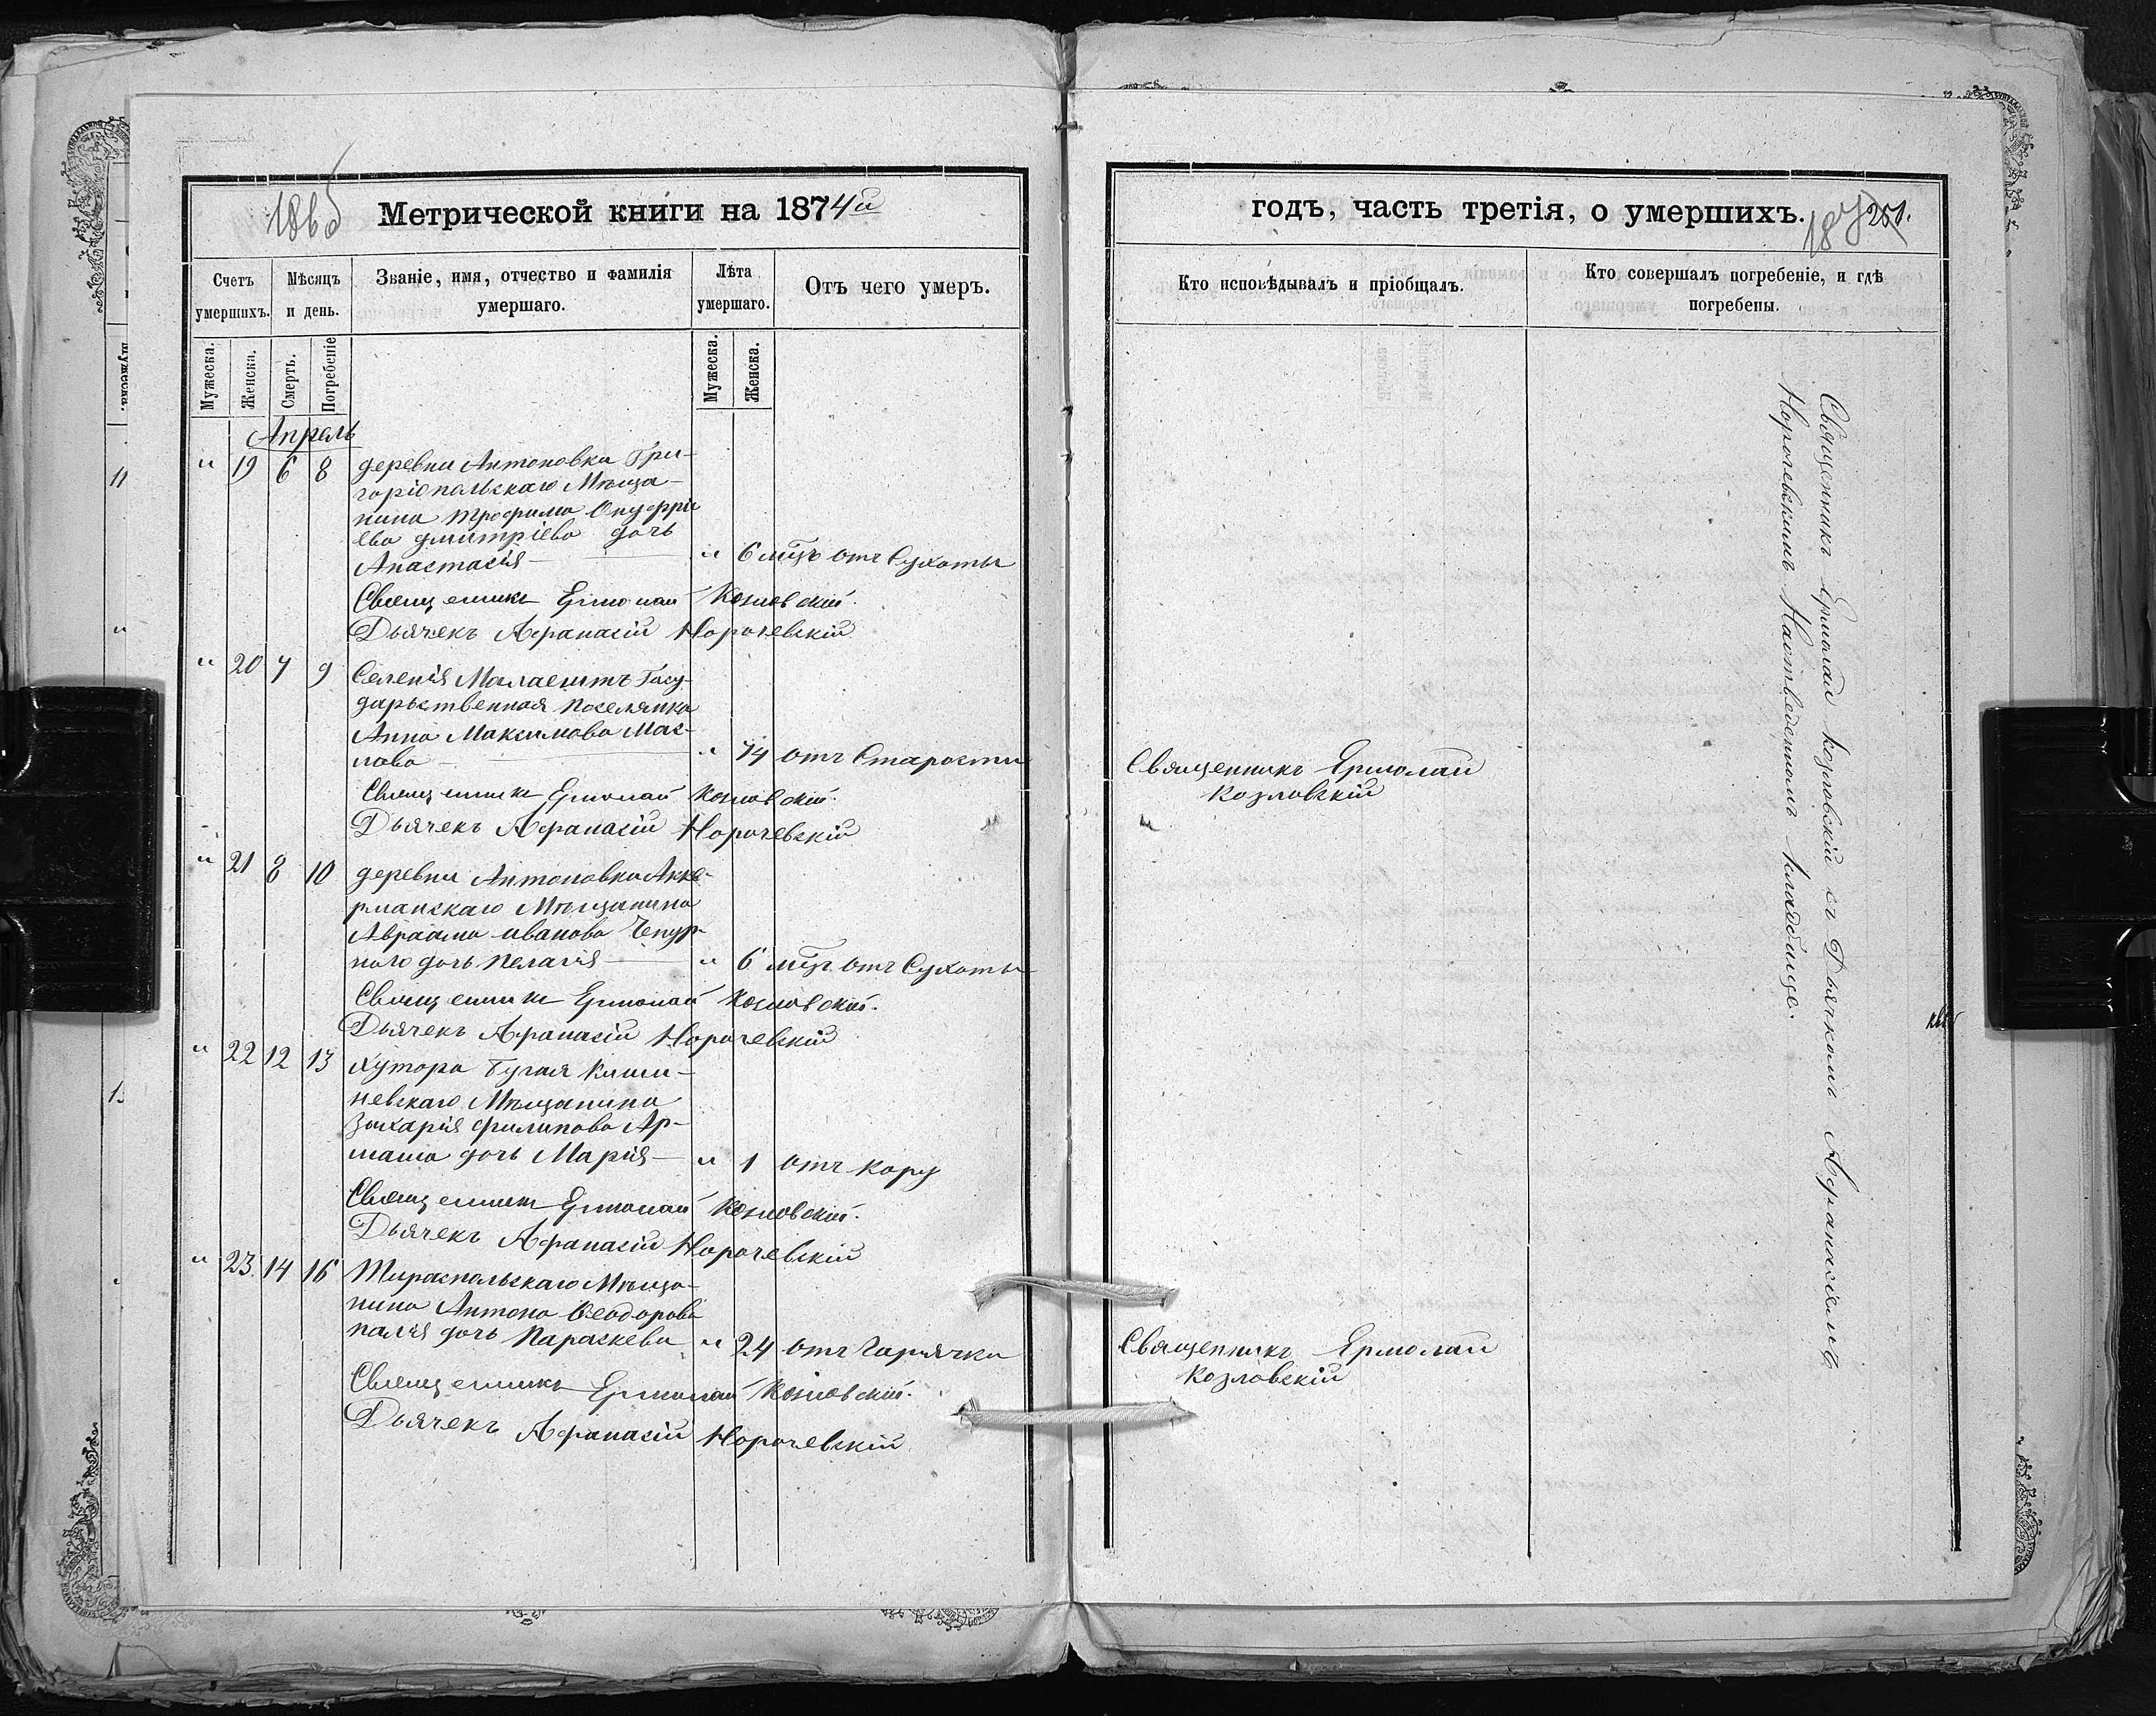 186б
Метрической книги на 1874й
Счетъ умершихъ.
Мѣсяцъ и день.
Званіе, имя, отчество и фамилія умершаго.
Лѣта умершаго.
Отъ чего умеръ.
Мужеска.
Женска.
Смерть.
Погребеніе
Мужеска.
Женска.
Апрель
" 19 6 8 деревни Антоновки Гри-
горіопольскаго Мѣща-
нина Трофима Онуфрі
ева Дмитріева дочь
Анастасія — " 6 мцъ отъ Сухоты
Священникъ Ермолай Козловскій.
Дьячекъ Афанасій Норочевскій
" 20 7 9 Селенія Малаештъ Госу-
дарственная поселянка
Анна Максимова Мас-
лова — " 74 отъ Старости
Священникъ Ермолай Козловскій.
Дьячекъ Афанасій Норочевскій
" 21 8 10 деревни Антоновки Акке-
рманскаго Мѣщанина
Авраама Иванова Чепур-
наго дочь Пелагія — " 6 мцъ отъ Сухоты
Священникъ Ермолай Козловскій.
Дьячекъ Афанасій Норочевскій
" 22 12 13 Хутора Бугая Киши-
невскаго Мѣщанина
Захарія Филипова Ар-
маша дочь Марія — " 1 отъ кору
Священникъ Ермолай Козловскій.
Дьячекъ Афанасій Норочевскій
" 23 14 16 Тираспольскаго Мѣща-
нина Антона Феодорова
Палія дочь Параскева " 24 отъ Горячки
Священникъ Ермолай Козловскій.
Дьячекъ Афанасій Норочевскій
годъ, часть третія, о умершихъ.
187
251.
Кто исповѣдывалъ и пріобщалъ.
Кто совершалъ погребеніе, и гдѣ погребены.
Священникъ Ермолай
Козловскій
Священникъ Ермолай
Козловскій
Священникъ Ермолай Козловскій съ Дьячкомъ Афанасіемъ
Норочевскимъ на отведенномъ кладбище.